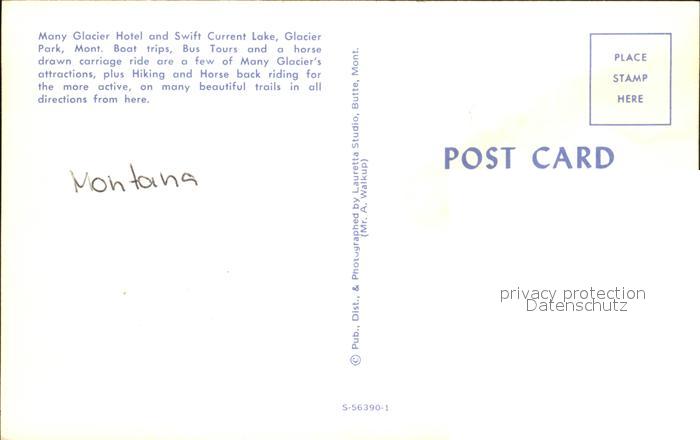 Many Glacier Hotel and Swift Current Lake, Glacier
Park, Mont. Boat trips, Bus Tours and a horse
drawn carriage ride are a few of Many Glacier's
attractions, plus Hiking and Horse back riding for
the more active, on many beautiful trails in all
directions from here.
Montana
© Pub., Dist., & Photographed by Lauretta Studio, Butte, Mont.
(Mr. A. Walkup)
S-56390-1
PLACE
STAMP
HERE
POST CARD
privacy protection
Datenschutz